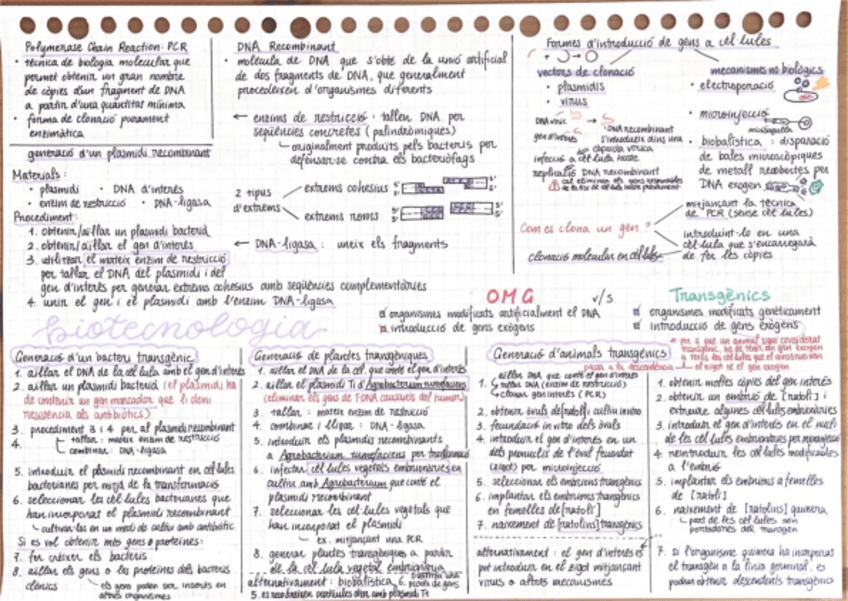 Polymerase Chain Reaction: PCR
• tècnica de biologia molecular que
permet obtenir un gran nombre
de còpies d'un fragment de DNA
a partir d'una quantitat mínima
• forma de clonació purament
enzimàtica
DNA Recombinant
• molècula de DNA que s'obté de la unió artificial
de dos fragments de DNA, que generalment
procedeixen d'organismes diferents
← enzims de restricció : tallen DNA per
seqüències concretes (palindròmiques)
originalment produïts pels bacteris per
defensar-se contra els bacteriòfags
2 tipus
d'extrems
extrems cohesius
extrems roms
← DNA-ligasa : uneix els fragments
Formes d'introducció de gens a cèl·lules
vectors de clonació
• plasmidis
• virus
DNA víric
gen d'interès
DNA recombinant
s'introdueix dins una
càpsida vírica
infecció a cèl·lula hoste
replicació DNA recombinant
mecanismes no biològics
• electroporació
• microinjecció
microagulla
• biobalística : disparació
de bales microscòpiques
de metall recobertes per
DNA exogen
Com es clona un gen ?
mitjançant la tècnica
de PCR (sense cèl·lules)
introduint-lo en una
cèl·lula que s'encarregarà
de fer les còpies
clonació molecular en cèl·lules
generació d'un plasmidi recombinant
Materials :
• plasmidi • DNA d'interès
• enzim de restricció • DNA-ligasa
Procediment:
1. obtenir/aïllar un plasmidi bacterià
2. obtenir/aïllar el gen d'interès
3. utilitzar el mateix enzim de restricció
per tallar el DNA del plasmidi i del
gen d'interès per generar extrems cohesius amb seqüències complementàries
4. unir el gen i el plasmidi amb l'enzim DNA-ligasa
OMG v/s Transgènics
organismes modificats artificialment el DNA
introducció de gens exògens
organismes modificats genèticament
introducció de gens exògens
biotecnologia
Generació d'un bacteri transgènic
1. aïllar el DNA de la cèl·lula amb el gen d'interès
2. aïllar un plasmidi bacterià (el plasmidi ha
de contenir un gen marcador que li doni
resistència als antibiòtics)
3. procediment 3 i 4 per al plasmidi recombinant
4. tallar : mateix enzim de restricció
combinar : DNA-ligasa
5. introduir el plasmidi recombinant en cèl·lules
bacterianes per mitjà de la transformació
6. seleccionar les cèl·lules bacterianes que
han incorporat el plasmidi recombinant
cultivar-les en un medi de cultiu amb antibiòtic
Si es vol obtenir més gens o proteïnes:
7. fer créixer els bacteris
8. aïllar els gens o les proteïnes dels bacteris
clònics
els gens poden ser inserits en
altres organismes
Generació de plantes transgèniques
1. aïllar el DNA de la cèl. que conté el gen d'interès
2. aïllar el plasmidi Ti d'Agrobacterium tumefaciens
(eliminar els gens de T-DNA causants del tumor)
3. tallar : mateix enzim de restricció
4. combinar i lligar : DNA-ligasa
5. introduir els plasmidis recombinants
a Agrobacterium tumefaciens per transformació
6. infectar cèl·lules vegetals embrionàries en
cultiu amb Agrobacterium que conté el
plasmidi recombinant
7. seleccionar les cèl·lules vegetals que
han incorporat el plasmidi
ex. mitjançant una PCR
8. generar plantes transgèniques a partir
de la cèl·lula vegetal embrionària
alternativament: biobalística
Generació d'animals transgènics
1. aïllar DNA que conté el gen d'interès
tallar DNA (enzim de restricció)
clonar gen interès (PCR)
2. obtenir òvuls de [ratolí] i cultiu in vitro
3. fecundació in vitro dels òvuls
4. introduir el gen d'interès en un
dels pronuclis de l'òvul fecundat
(zigot) per microinjecció
5. seleccionar els embrions transgènics
6. implantar els embrions transgènics
en femelles de [ratolí]
7. naixement de [ratolins] transgènics
alternativament : el gen d'interès es
pot introduir en el zigot mitjançant
virus o altres mecanismes
1. obtenir moltes còpies del gen interès
2. obtenir un embrió de [ratolí] i
extreure algunes cèl·lules embrionàries
3. introduir el gen d'interès en el nucli
de les cèl·lules embrionàries per microinjecció
4. reintroduir les cèl·lules modificades
a l'embrió
5. implantar els embrions a femelles
de [ratolí]
6. naixement de [ratolins] quimera
part de les cèl·lules són
portadores del transgèn
7. si l'organisme quimera ha incorporat
el transgèn a la línia germinal, es
poden obtenir descendents transgènics